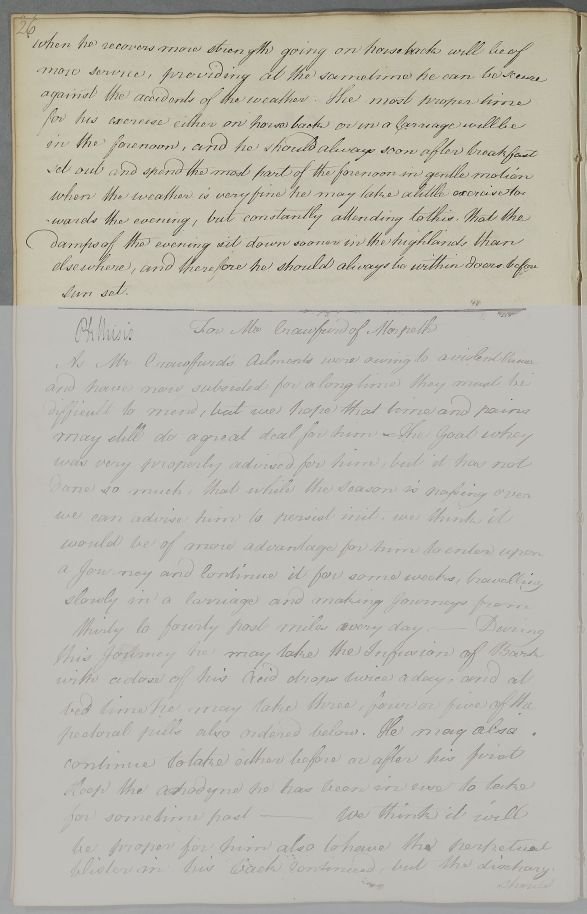 26
when he recovers more strength going on horseback will be of
more service, providing at the sametime he can be secure
against the accidents of the weather. The most proper time
for his exercise either on horseback or in a Carriage will be
in the forenoon, and he should always soon after breakfast
set out and spend the most part of the forenoon in gentle motion
when the weather is very fine he may take a little exercise to-
wards the evening, but constantly attending to this. that the
damps of the evening sit down sooner in the highlands than
elsewhere, and therefore he should always be within doors before
sun set.
Phthisis
For Mr Crawfurd of Morpeth
As Mr Crawfurds Ailments were owing to a violent
and have now subsisted for a long time they must be
difficult to mend, but we hope that time and pains
may still do a great deal for him - The Goat whey
was very properly advised for him, but it has not
done so much, that while the season is passing over
we can advise him to persist in it. we think it
would be of more advantage for him to enter upon
a Journey and Continue it for some weeks, travelling
slowly in a Carriage and making Journeys from
thirty to fourty post miles every day — During
this Journey he may take the Infusion of Bark
with a dose of his Acid drops twice a day, and at
bed time he may take three, four or five of the
pectoral pills also ordered below. He may also
continue to take either before or after his first
sleep the anodyne he has been in use to take
for sometime past — We think it will
be proper for him also to have the perpetual
blister in his back continued, but the discharge
should